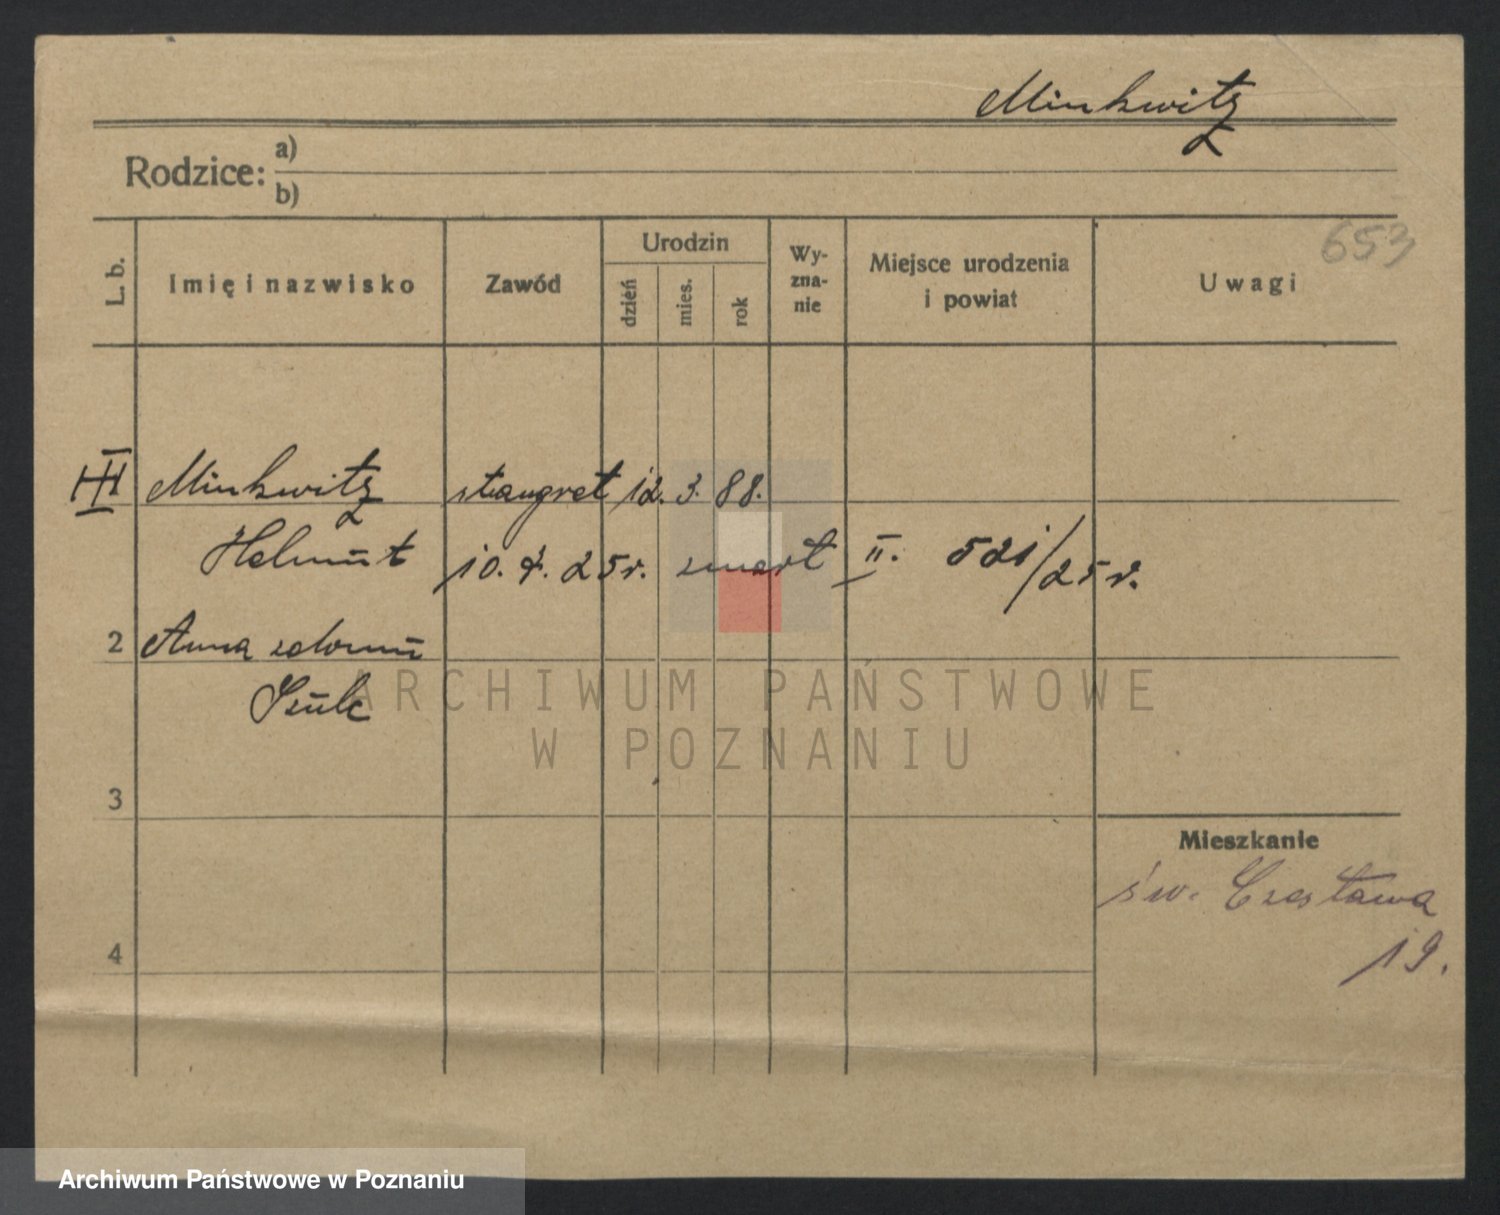 Minkwitz
Rodzice: a)
b)
653
L. b.
Imię i nazwisko
Zawód
Urodzin
dzień
mies.
rok
Wy-
zna-
nie
Miejsce urodzenia
i powiat
Uwagi
III Minkwitz stangret 12. 3. 88.
Helmut 10. 25 r. zmarł II. 521/25 r.
2 Anna
Szulc
ARCHIWUM PAŃSTWOWE
W POZNANIU
3
Mieszkanie
św. Czesława
19.
4
Archiwum Państwowe w Poznaniu